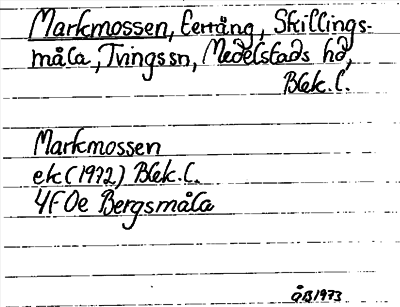 Markmossen, terräng, Skillings-
måla, Tvingssn, Medelstads hd,
Blek. l.
Markmossen
ek (1972) Blek. l.
4F 0e Bergsmåla
ÅB 1973